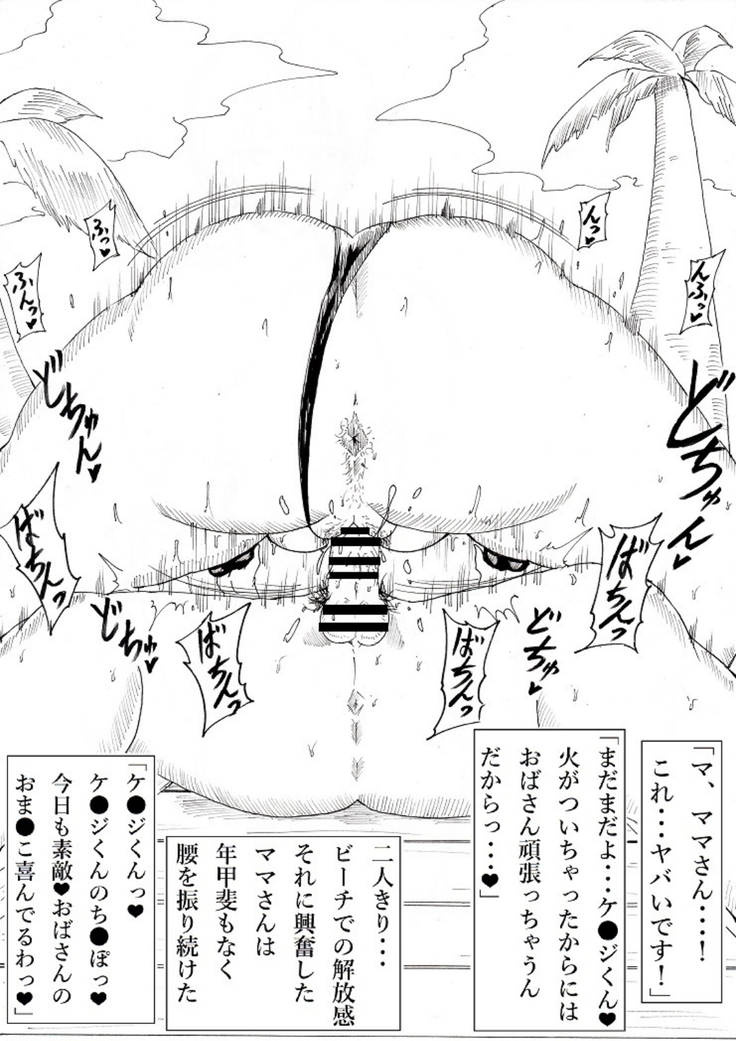 んっ♥
んふっ♥
ふっ♥
ふんっ♥
どちゅん♥
どちゅん♥
ばちんっ
ばちんっ
どちゅ♥
ばちんっ
どちゅ♥
ばちんっ
「マ、ママさん・・・・！
これ・・・ヤバいです！」
「まだまだよ・・・ケ●ジくん♥
火がついちゃったからには
おばさん頑張っちゃうん
だからっ・・・♥」
二人きり・・・
ビーチでの解放感
それに興奮した
ママさんは
年甲斐もなく
腰を振り続けた
「ケ●ジくんっ♥
ケ●ジくんのち●ぽっ♥
今日も素敵♥おばさんの
おま●こ喜んでるわっ♥」